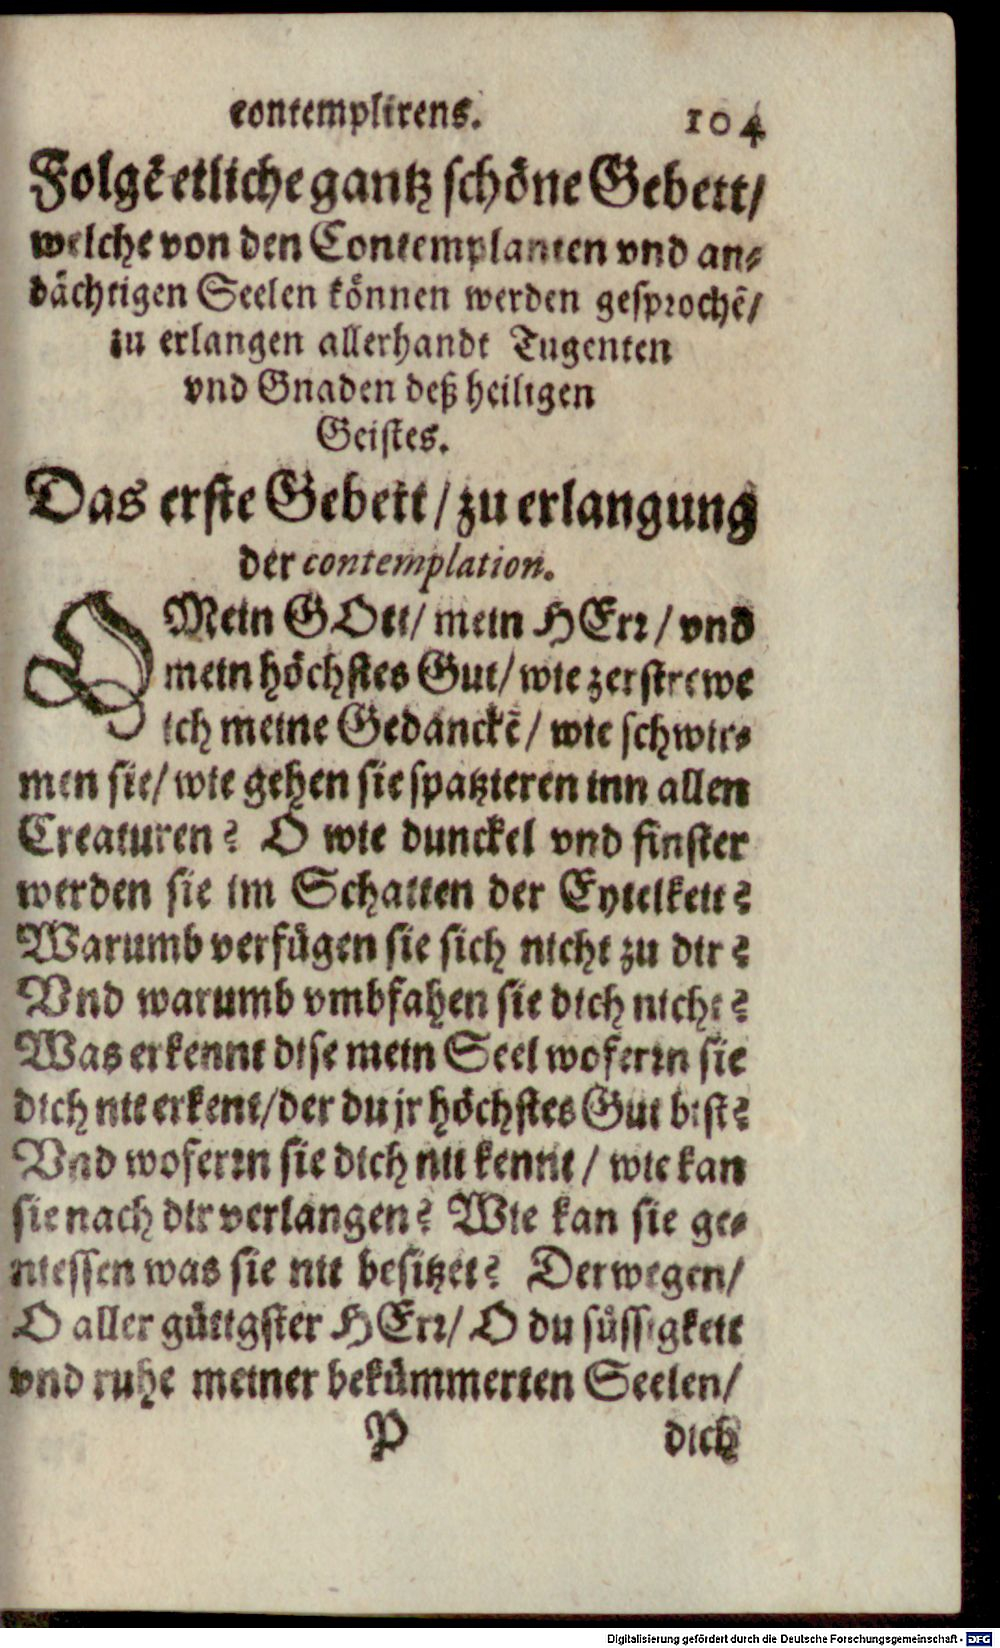 contemplirens. 104
Folgẽ etliche gantz schöne Gebett/
welche von den Contemplanten vnd an-
dächtigen Seelen können werden gesprochẽ/
zu erlangen allerhandt Tugenten
vnd Gnaden deß heiligen
Geistes.
Das erste Gebett/ zu erlangung
der contemplation.
O Mein GOtt/ mein HErr/ vnd
mein höchstes Gut/ wie zerstrewe
ich meine Gedanckẽ/ wie schwir-
men sie/ wie gehen sie spatzieren inn allen
Creaturen? O wie dunckel vnd finster
werden sie im Schatten der Eytelkeit?
Warumb verfügen sie sich nicht zu dir?
Vnd warumb vmbfahen sie dich nicht?
Was erkennt dise mein Seel woferrn sie
dich nit erkent/ der du jr höchstes Gut bist?
Vnd woferrn sie dich nit kennt/ wie kan
sie nach dir verlangen? Wie kan sie ge-
niessen was sie nit besitzet? Derwegen/
O aller gütigster HErr/ O du süssigkeit
vnd ruhe meiner bekümmerten Seelen/
P dich
Digitalisierung gefördert durch die Deutsche Forschungsgemeinschaft - DFG